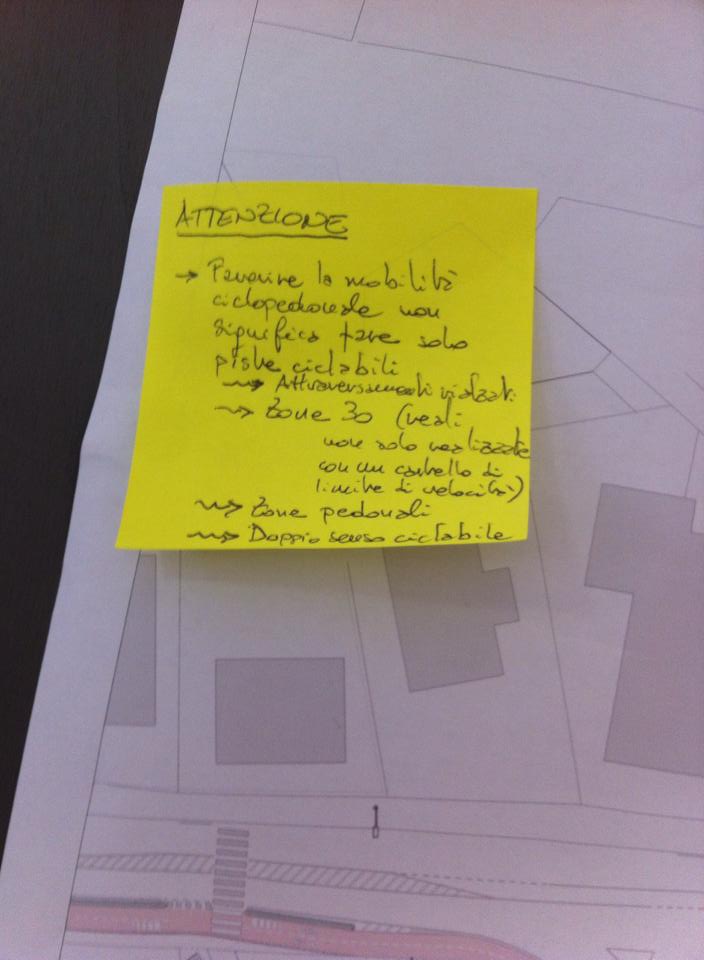 ATTENZIONE
→ Favorire la mobilità
ciclopedonale non
significa fare solo
piste ciclabili
→ Attraversamenti rialzati
→ Zone 30 (reali
non solo realizzate
con un cartello di
limite di velocità)
→ Zone pedonali
→ Doppio senso ciclabile